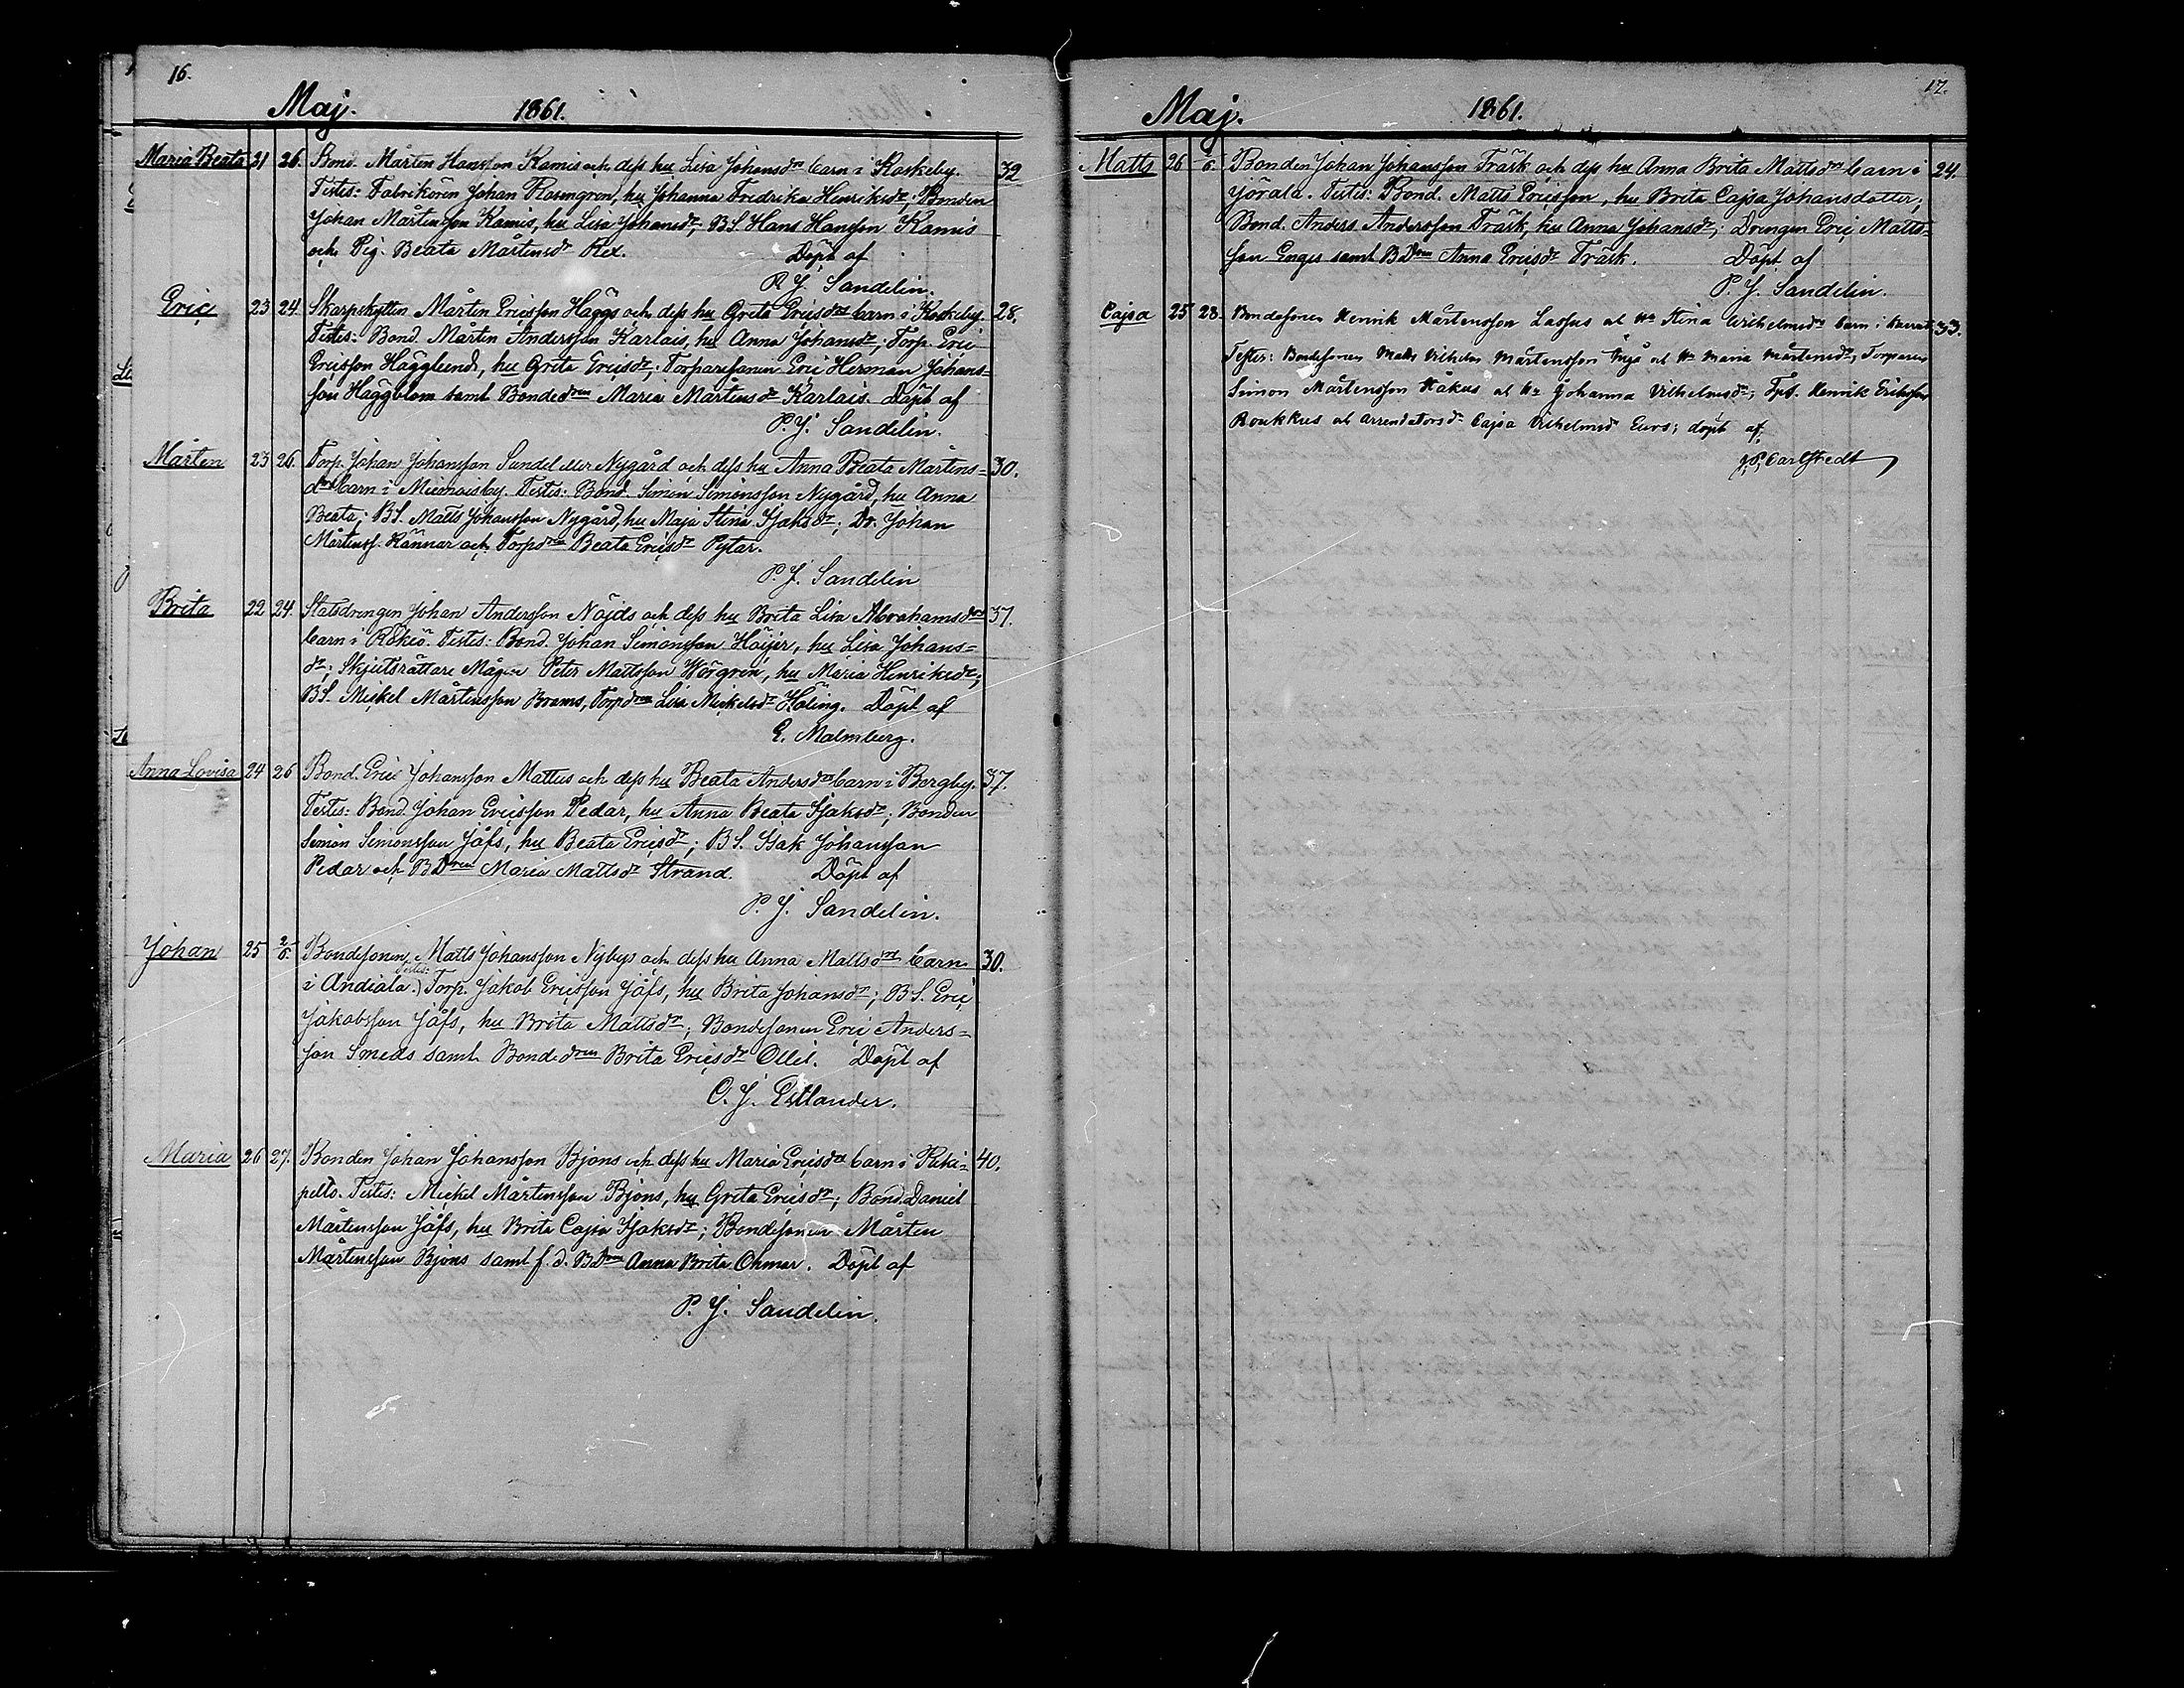 16.
Maj. 1861.
Maria Beata 21 26. Bond. Mårten Hansson Kamis och dess hu Lisa Johansdrs barn i Koskeby. 32
Testes: Fabrikören Johan Rosengren, hu Johanna Fredrika Henriksdr; Bonden
Johan Mårtensson Kamis, hu Lisa Johansdr; B.S. Hans Hansson Kamis
och Pig. Beata Mårtensdr Rex. Döpt af
P. J. Sandelin.
Eric 23 24 Skarpskytten Mårten Ericsson Häggs och dess hu Greta Ericsdrs barn i Koskeby. 28.
Testes: Bond. Mårten Andersson Karlais, hu Anna Johansdr; Torp. Eric
Ericsson Hägglund, hu Greta Ericsdr; Torparesonen Eric Herman Johans=
son Häggblom samt Bondedrn Maria Mårtensdr Karlais. Döpt af
P. J. Sandelin.
Mårten 23 26. Torp. Johan Johansson Sundel eller Nygård och dess hu Anna Beata Mårtens= 30.
drs barn i Miemoisby. Testes: Bond. Simon Simonsson Nygård, hu Anna
Beata; B.S. Matts Johansson Nygård, hu Maja Stina Isaksdr; Dr. Johan
Mårtenss. Rännar och Torpdrn Beata Ericsdr Pytar.
P. J. Sandelin
Brita 22 24. Statsdrengen Johan Andersson Nöjds och dess hu Brita Lisa Abrahamsdrs 37.
barn i Rökiö. Testes: Bond. Johan Simonsson Höijer, hu Lisa Johans=
dr; Skjutsrättare Mågen Peter Mattsson Wörgren, hu Maria Henriksdr;
BS. Mickel Mårtensson Brams, Torpdrn Lisa Mickelsdr Höling. Döpt af
E. Malmberg.
Anna Lovisa 24 26 Bond. Eric Johansson Mattus och dess hu Beata Andersdrs barn i Bergby. 37.
Testes: Bond. Johan Ericsson Pedar, hu Anna Beata Isaksdr; Bonden
Simon Simonsson Jåfs, hu Beata Ericsdr; B.S. Isak Johansson
Pedar och BDrn Maria Mattsdr Strand. Döpt af
P. J. Sandelin.
Johan 25 2/6. Bondesonen Matts Johansson Nybys och dess hu Anna Mattsdrs barn 30.
i Andiala. Testes: Torp. Jakob Ericsson Jåfs, hu Brita Johansdr; B.S. Eric
Jakobsson Jåfs, hu Brita Mattsdr; Bondesonen Eric Anders=
son Smeds samt Bondedrn Brita Ericsdr Ollis. Döpt af
C. J. Estlander.
Maria 26 27. Bonden Johan Johansson Bjöns och dess hu Maria Ericsdrs barn i Peki= 40.
pelto. Testes: Mickel Mårtensson Bjöns, hu Greta Ericsdr; Bond. Daniel
Mårtensson Jåfs, hu Brita Cajsa Isaksdr; Bondesonen Mårten
Mårtensson Bjöns samt f.d. BDrn Anna Brita Ohmar. Döpt af
P. J. Sandelin.
17.
Maj. 1861.
Matts 26 /6. Bonden Johan Johansson Träsk och dess hu Anna Brita Mattsdrs barn i 24.
Jörala. Testes: Bond. Matts Ericsson, hu Brita Cajsa Johansdotter;
Bond. Anders Andersson Träsk, hu Anna Johansdr; Drengen Eric Matts=
son Enges samt BDrn Anna Ericsdr Träsk. Döpt af
P. J. Sandelin.
Cajsa 25 28. Bondesonen Henrik Mårtensson Lassus at Hu Stina Vilhelmsdrs barn i 33.
Testes: Bondesonen Matts Vilhelm Mårtensson at Hu Maria Mårtensdr; Torparen
Simon Mårtensson Håkus at Hu Johanna Vilhelmsdr; Henrik Eriksson
Roukkus at arrendatorsdr Cajsa Vilhelmsdr Eurs; döpt af,
J. P. Carlstedt